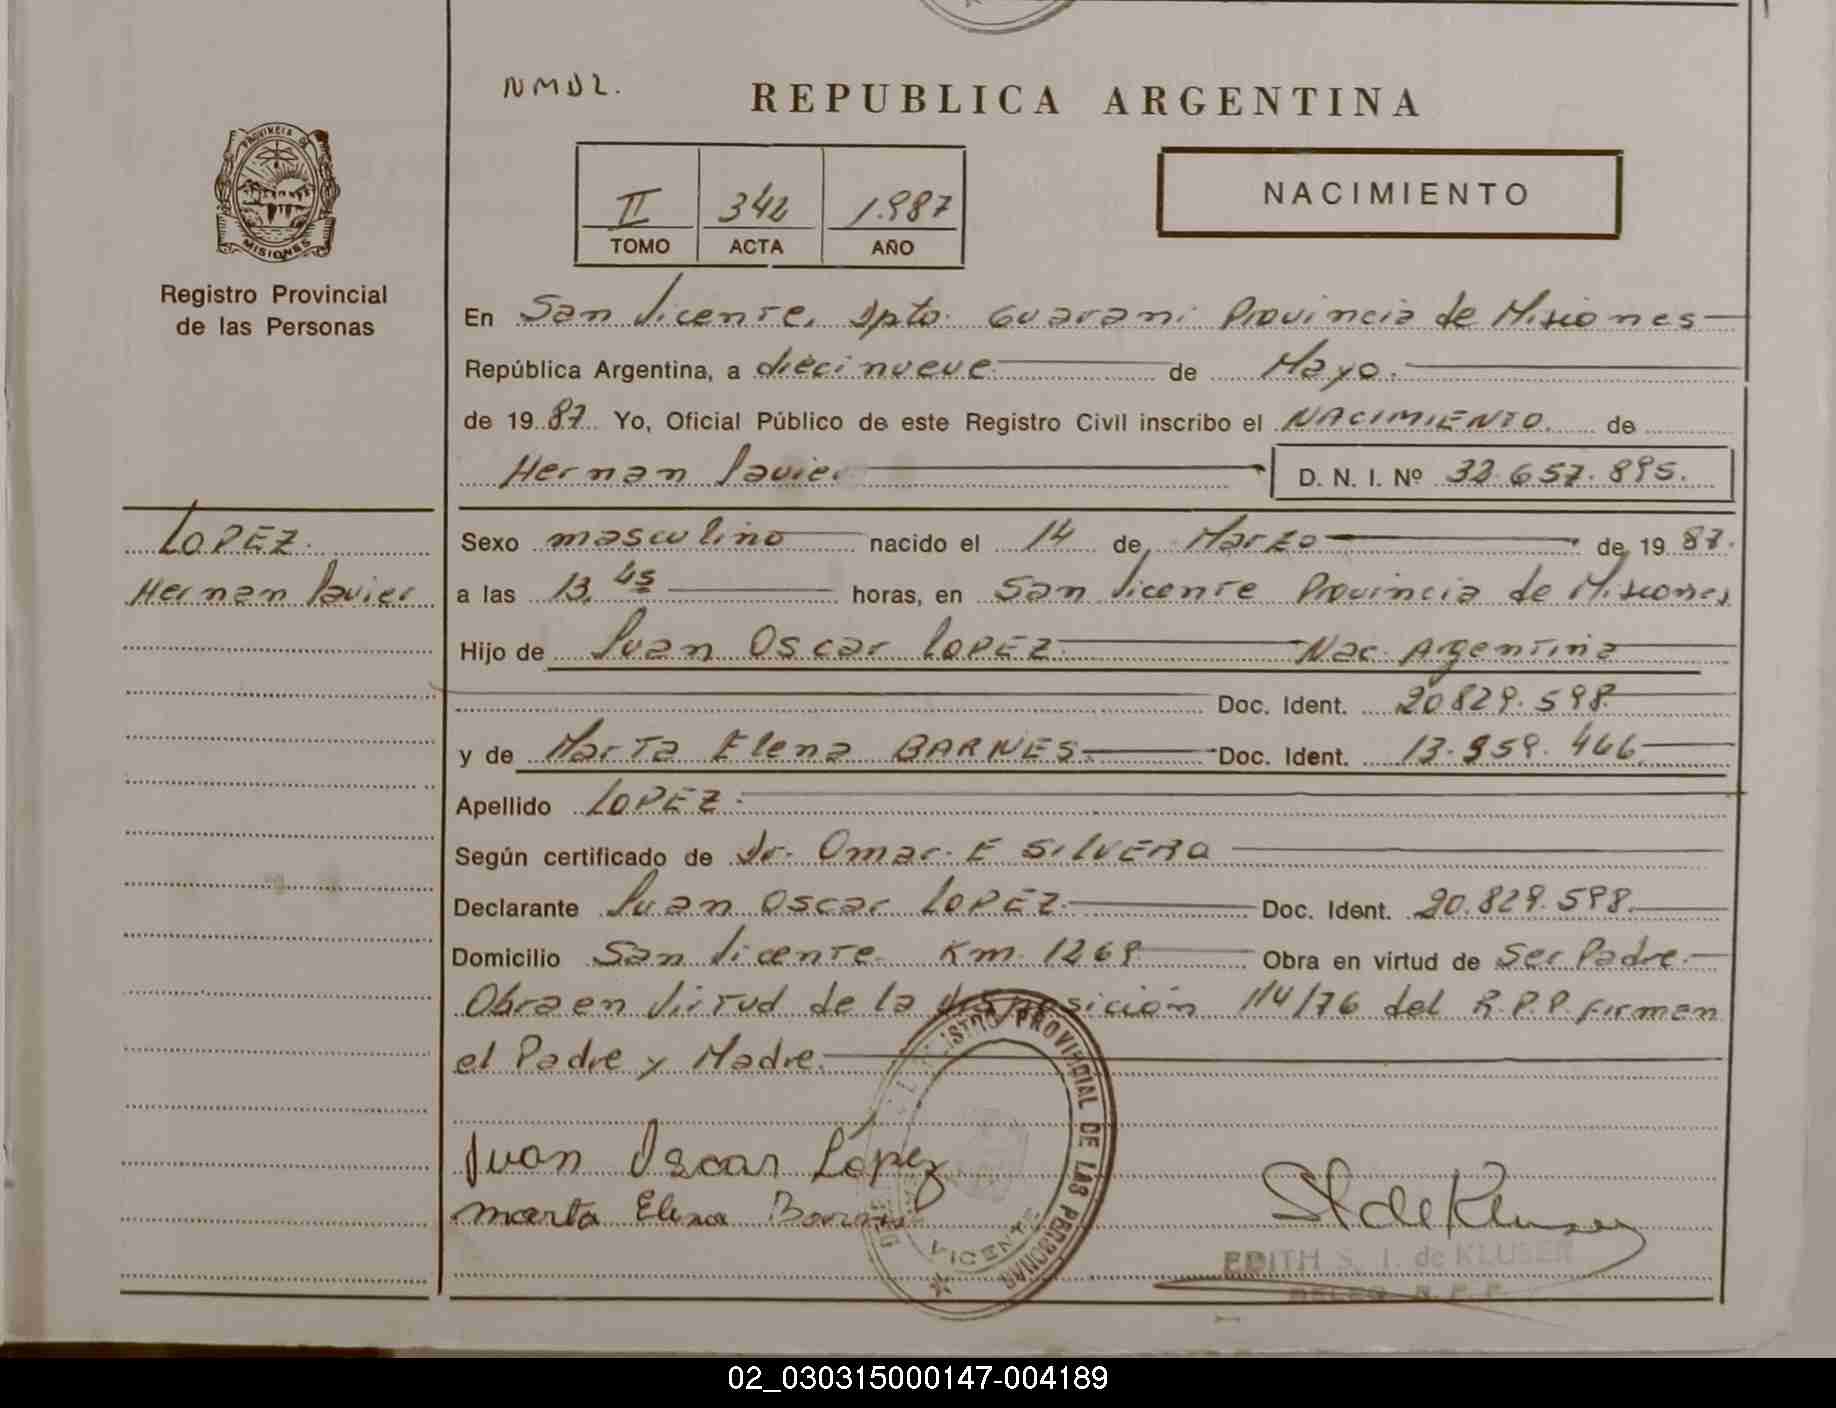 NMDZ.
REPUBLICA ARGENTINA
PROVINCIA DE
MISIONES
Registro Provincial
de las Personas
II 342 1.987
TOMO ACTA AÑO
NACIMIENTO
En San Vicente, Dpto. Guarani Provincia de Misiones
República Argentina, a diecinueve de Mayo.
de 19 87. Yo, Oficial Público de este Registro Civil inscribo el NACIMIENTO. de
Hernan Javier D. N. I. Nº 32.657.895.
LOPEZ.
Hernan Javier
Sexo masculino nacido el 14 de Marzo de 19 87.
a las 13,45 horas, en San Vicente Provincia de Misiones
Hijo de Juan Oscar LOPEZ. Nac. Argentina
Doc. Ident. 20.829.598.
y de Marta Elena BARNES. Doc. Ident. 13.959.466.
Apellido LOPEZ.
Según certificado de Dr. Omar. E SILVERA
Declarante Juan Oscar LOPEZ. Doc. Ident. 20.829.598.
Domicilio San Vicente Km. 1269 Obra en virtud de Ser Padre.
Obra en virtud de la disposición 114/76 del R.P.P. firman
el Padre y Madre.
PROVINCIAL DE LAS PERSONAS
VICENTE
Juan Oscar López
Marta Elena
EDITH S. I. de KLUSER
02_030315000147-004189